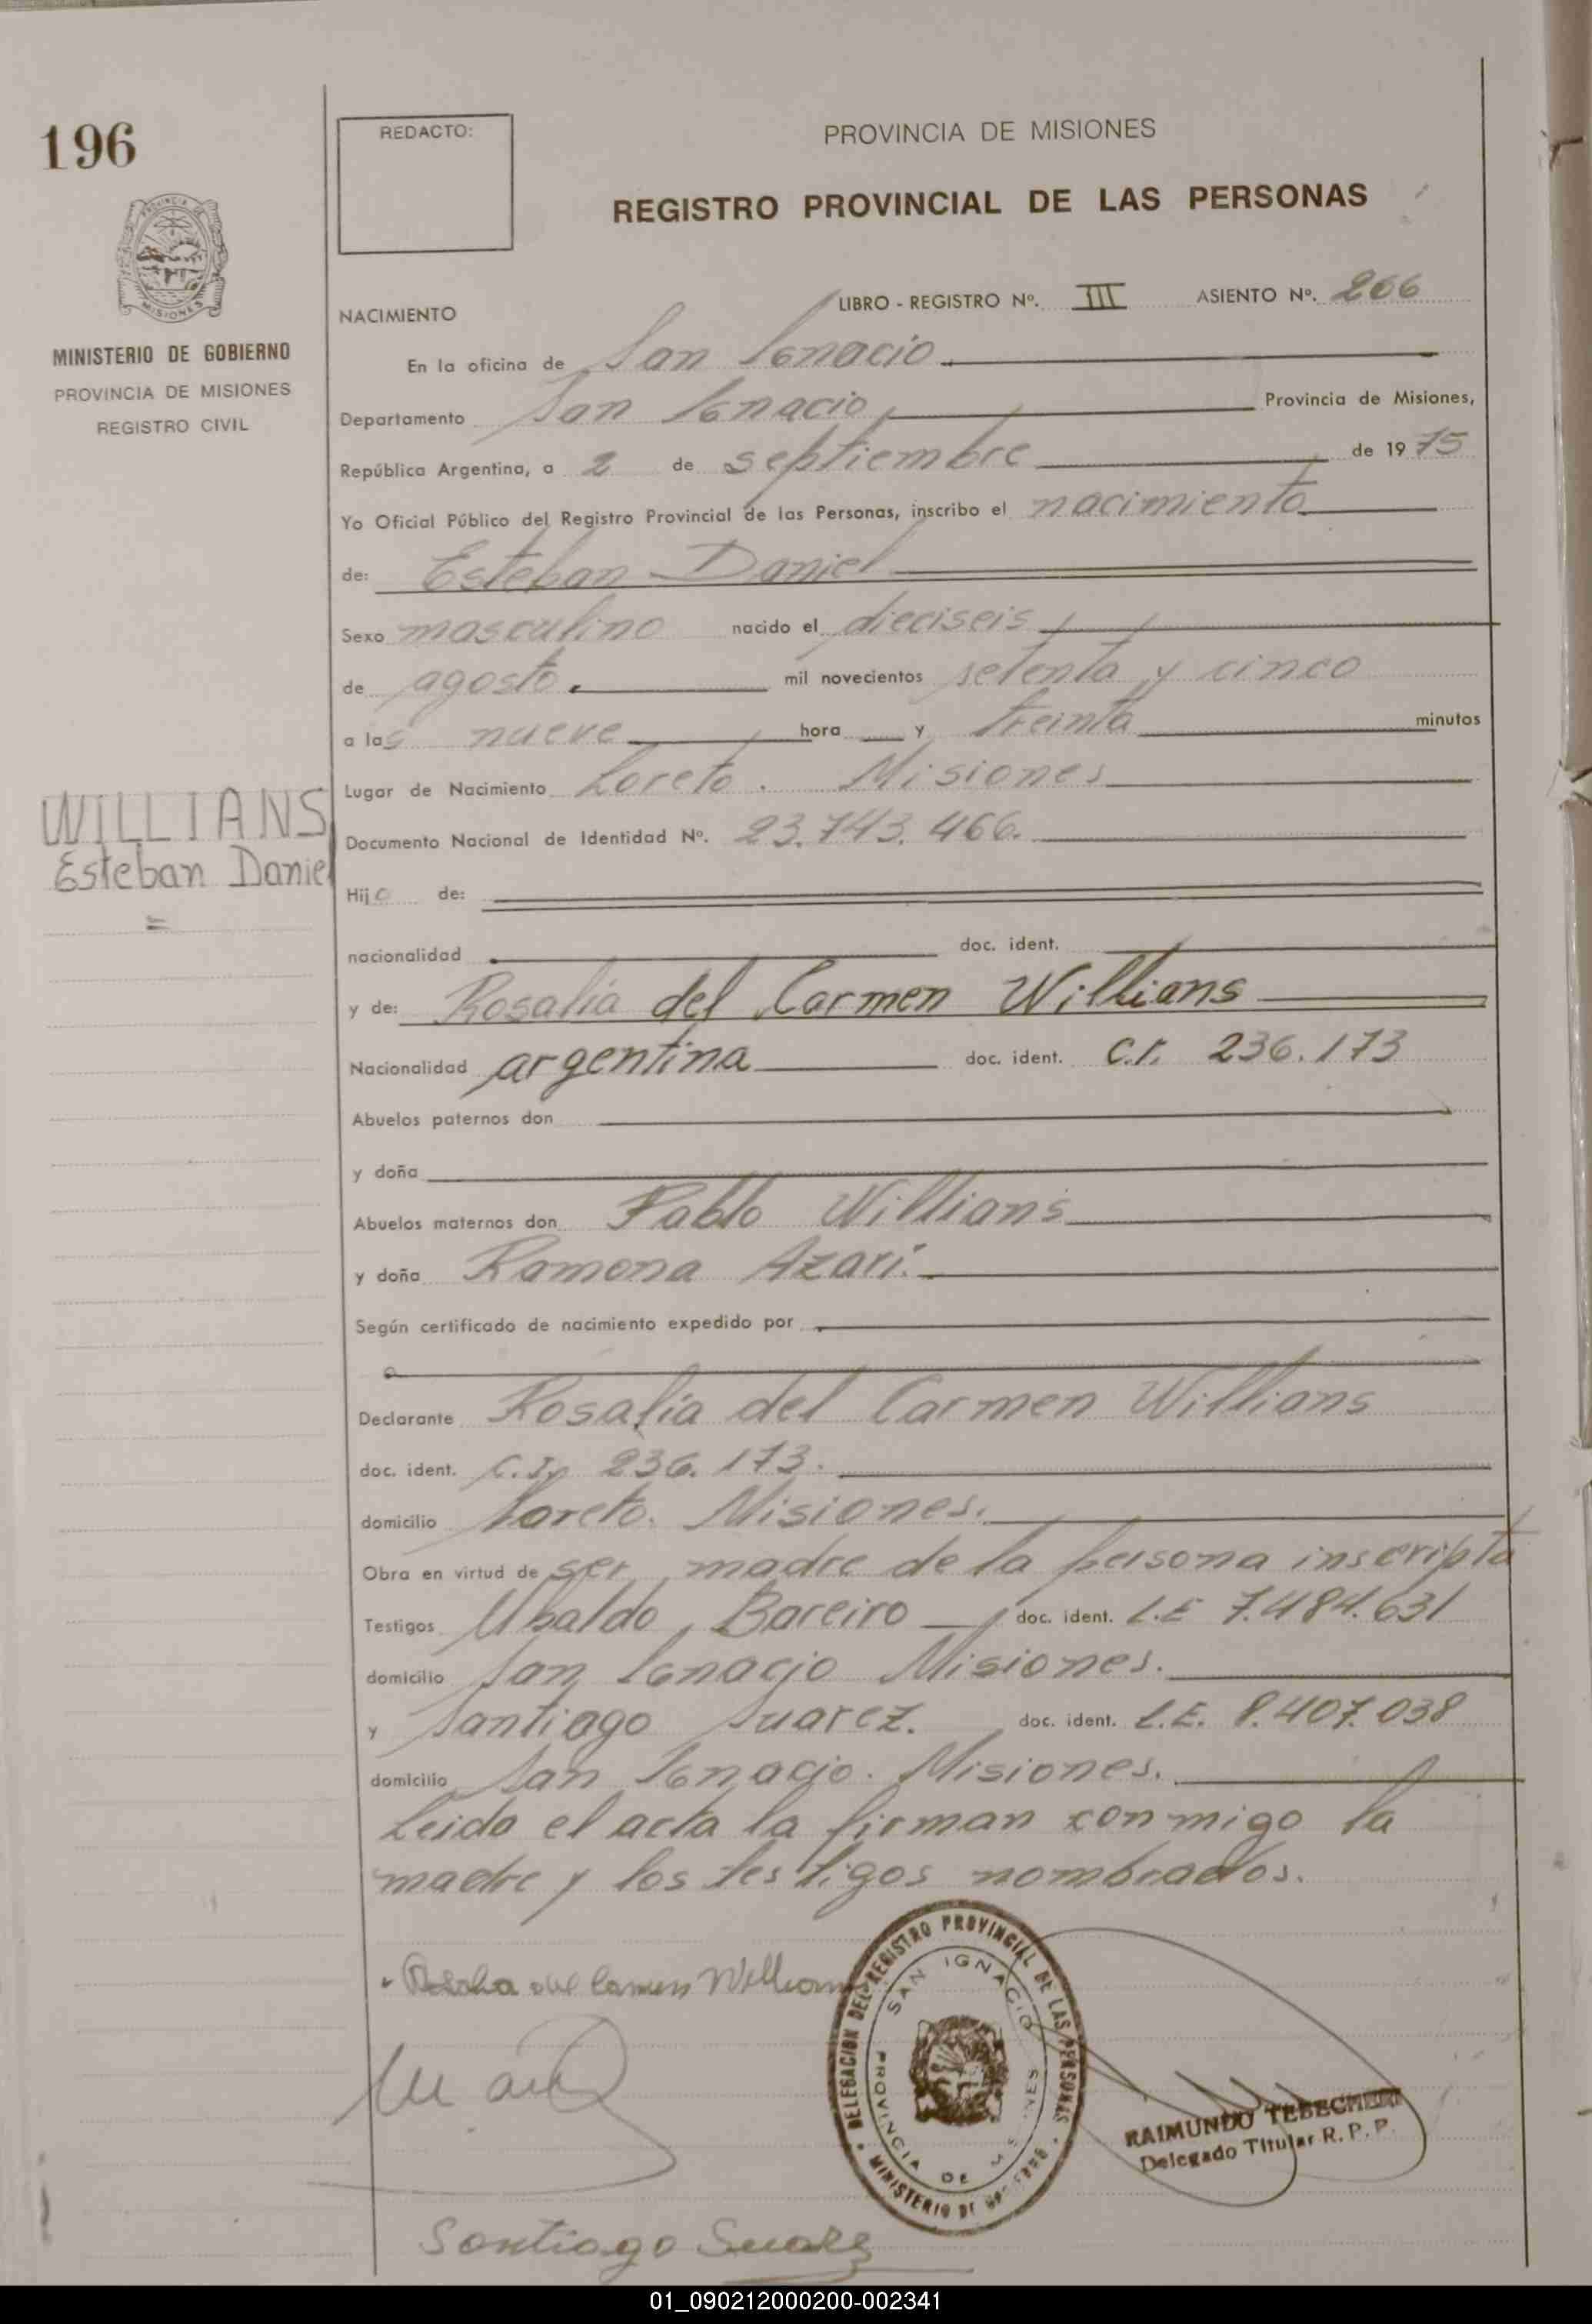 196
REDACTO:
PROVINCIA DE MISIONES
REGISTRO PROVINCIAL DE LAS PERSONAS
MINISTERIO DE GOBIERNO
PROVINCIA DE MISIONES
REGISTRO CIVIL
NACIMIENTO
LIBRO - REGISTRO Nº. III ASIENTO Nº. 206
En la oficina de San Ignacio.
Departamento San Ignacio, Provincia de Misiones,
República Argentina, a 2 de septiembre de 1975
Yo Oficial Público del Registro Provincial de las Personas, inscribo el nacimiento
de: Esteban Daniel
Sexo masculino nacido el dieciseis
de agosto. mil novecientos setenta y cinco
a las nueve hora y treinta minutos
Lugar de Nacimiento Loreto. Misiones
WILLIANS
Esteban Daniel
Documento Nacional de Identidad Nº. 23.743.466.
Hijo de:
nacionalidad doc. ident.
y de: Rosalia del Carmen Willians
Nacionalidad argentina doc. ident. C.I. 236.173
Abuelos paternos don
y doña
Abuelos maternos don Pablo Willians
y doña Ramona Azari.
Según certificado de nacimiento expedido por
Declarante Rosalia del Carmen Willians
doc. ident. C.I. 236.173.
domicilio Loreto. Misiones.
Obra en virtud de ser madre de la persona inscripta
Testigos Ubaldo Bareiro doc. ident. L.E 7.484.631
domicilio San Ignacio Misiones.
y Santiago Suarez. doc. ident. L.E. 8.407.038
domicilio San Ignacio. Misiones.
Leido el acta la firman conmigo la
madre y los testigos nombrados.
Rosalia del Carmen Willians
DELEGACION DEL REGISTRO PROVINCIAL DE LAS PERSONAS
SAN IGNACIO
PROVINCIA DE MISIONES
MINISTERIO DE GOBIERNO
RAIMUNDO TEBECHERI
Delegado Titular R. P. P.
Santiago Suarez
01_090212000200-002341